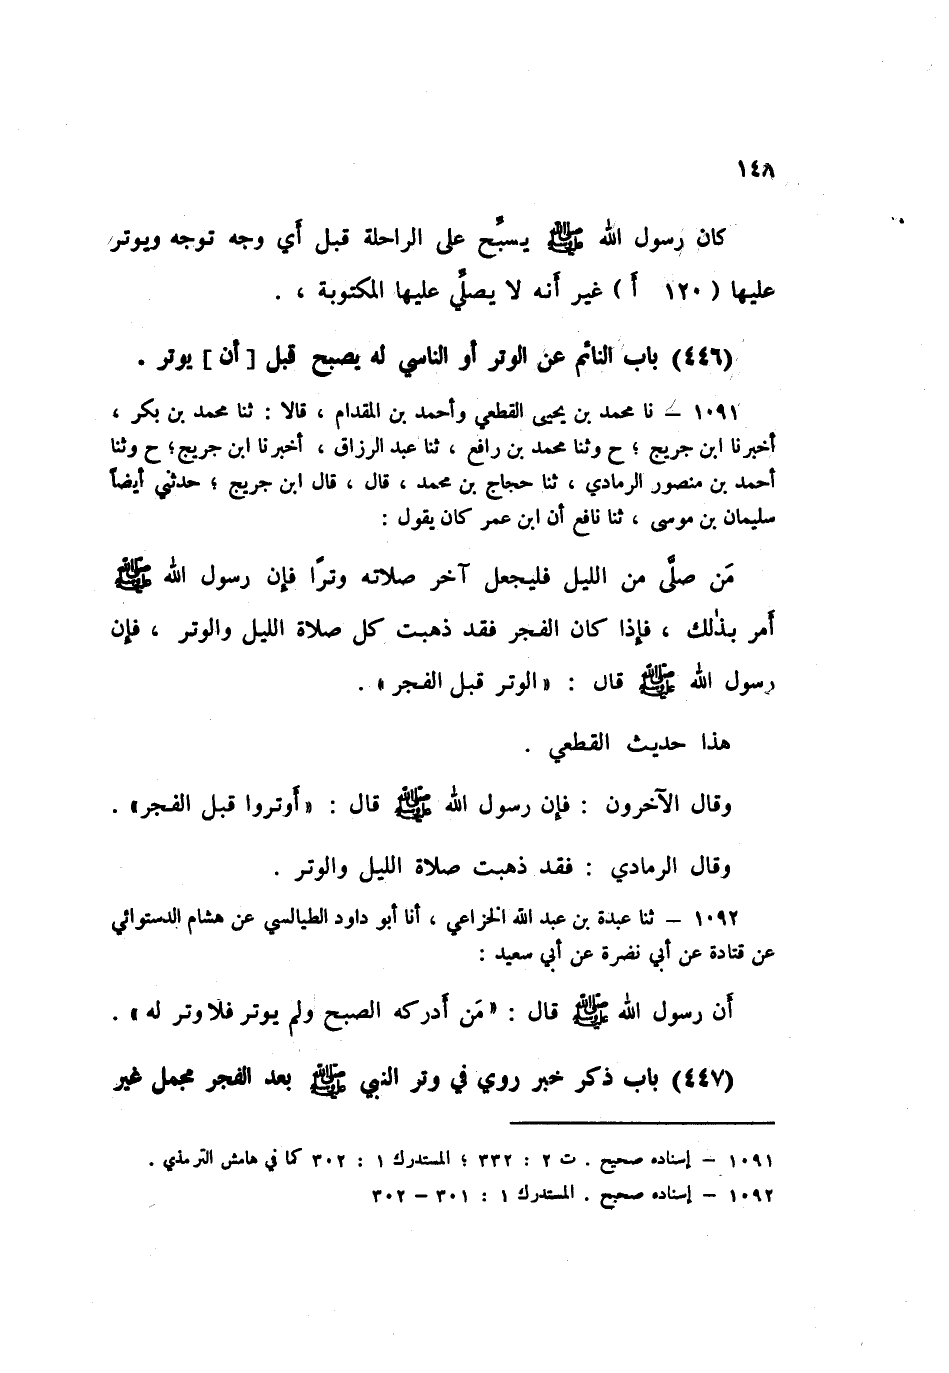 ١٤٨
كان رسول الله ﷺ يسبَّح على الراحلة قبل أَي وجه توجه ويوتر
عليها ( ١٢٠ أ ) غير أَنه لا يصلَّي عليها المكتوبة ، .
(٤٤٦) باب النائم عن الوتر أو الناسي له يصبح قبل [ أن ] يوتر .
١٠٩١ – نا محمد بن يحيى القطعي وأحمد بن المقدام ، قالا : ثنا محمد بن بكر ،
أخبرنا ابن جريج ؛ ح وثنا محمد بن رافع ، ثنا عبد الرزاق ، أخبرنا ابن جريج؛ ح وثنا
أحمد بن منصور الرمادي ، ثنا حجاج بن محمد ، قال ، قال ابن جريج ؛ حدثني أيضاً
سليمان بن موسى ، ثنا نافع أن ابن عمر كان يقول :
مَن صلَّى من الليل فليجعل آخر صلاته وترًا فإن رسول الله ﷺ
أَمر بذلك ، فإذا كان الفجر فقد ذهبت كل صلاة الليل والوتر ، فإن
رسول الله ﷺ قال : «الوتر قبل الفجر» .
هذا حديث القطعي .
وقال الآخرون : فإن رسول الله ﷺ قال : «أَوتروا قبل الفجر» .
وقال الرمادي : فقد ذهبت صلاة الليل والوتر .
١٠٩٢ – ثنا عبدة بن عبد الله الخزاعي ، أنا أبو داود الطيالسي عن هشام الدستوائي
عن قتادة عن أبي نضرة عن أبي سعيد :
أَن رسول الله ﷺ قال : «مَن أَدركه الصبح ولم يوتر فلا وتر له» .
(٤٤٧) باب ذكر خبر روي في وتر النبي ﷺ بعد الفجر مجمل غير
١٠٩١ – إسناده صحيح . ت ٢ : ٣٣٢ ؛ المستدرك ١ : ٣٠٢ كما في هامش الترمذي .
١٠٩٢ – إسناده صحيح . المستدرك ١ : ٣٠١ – ٣٠٢